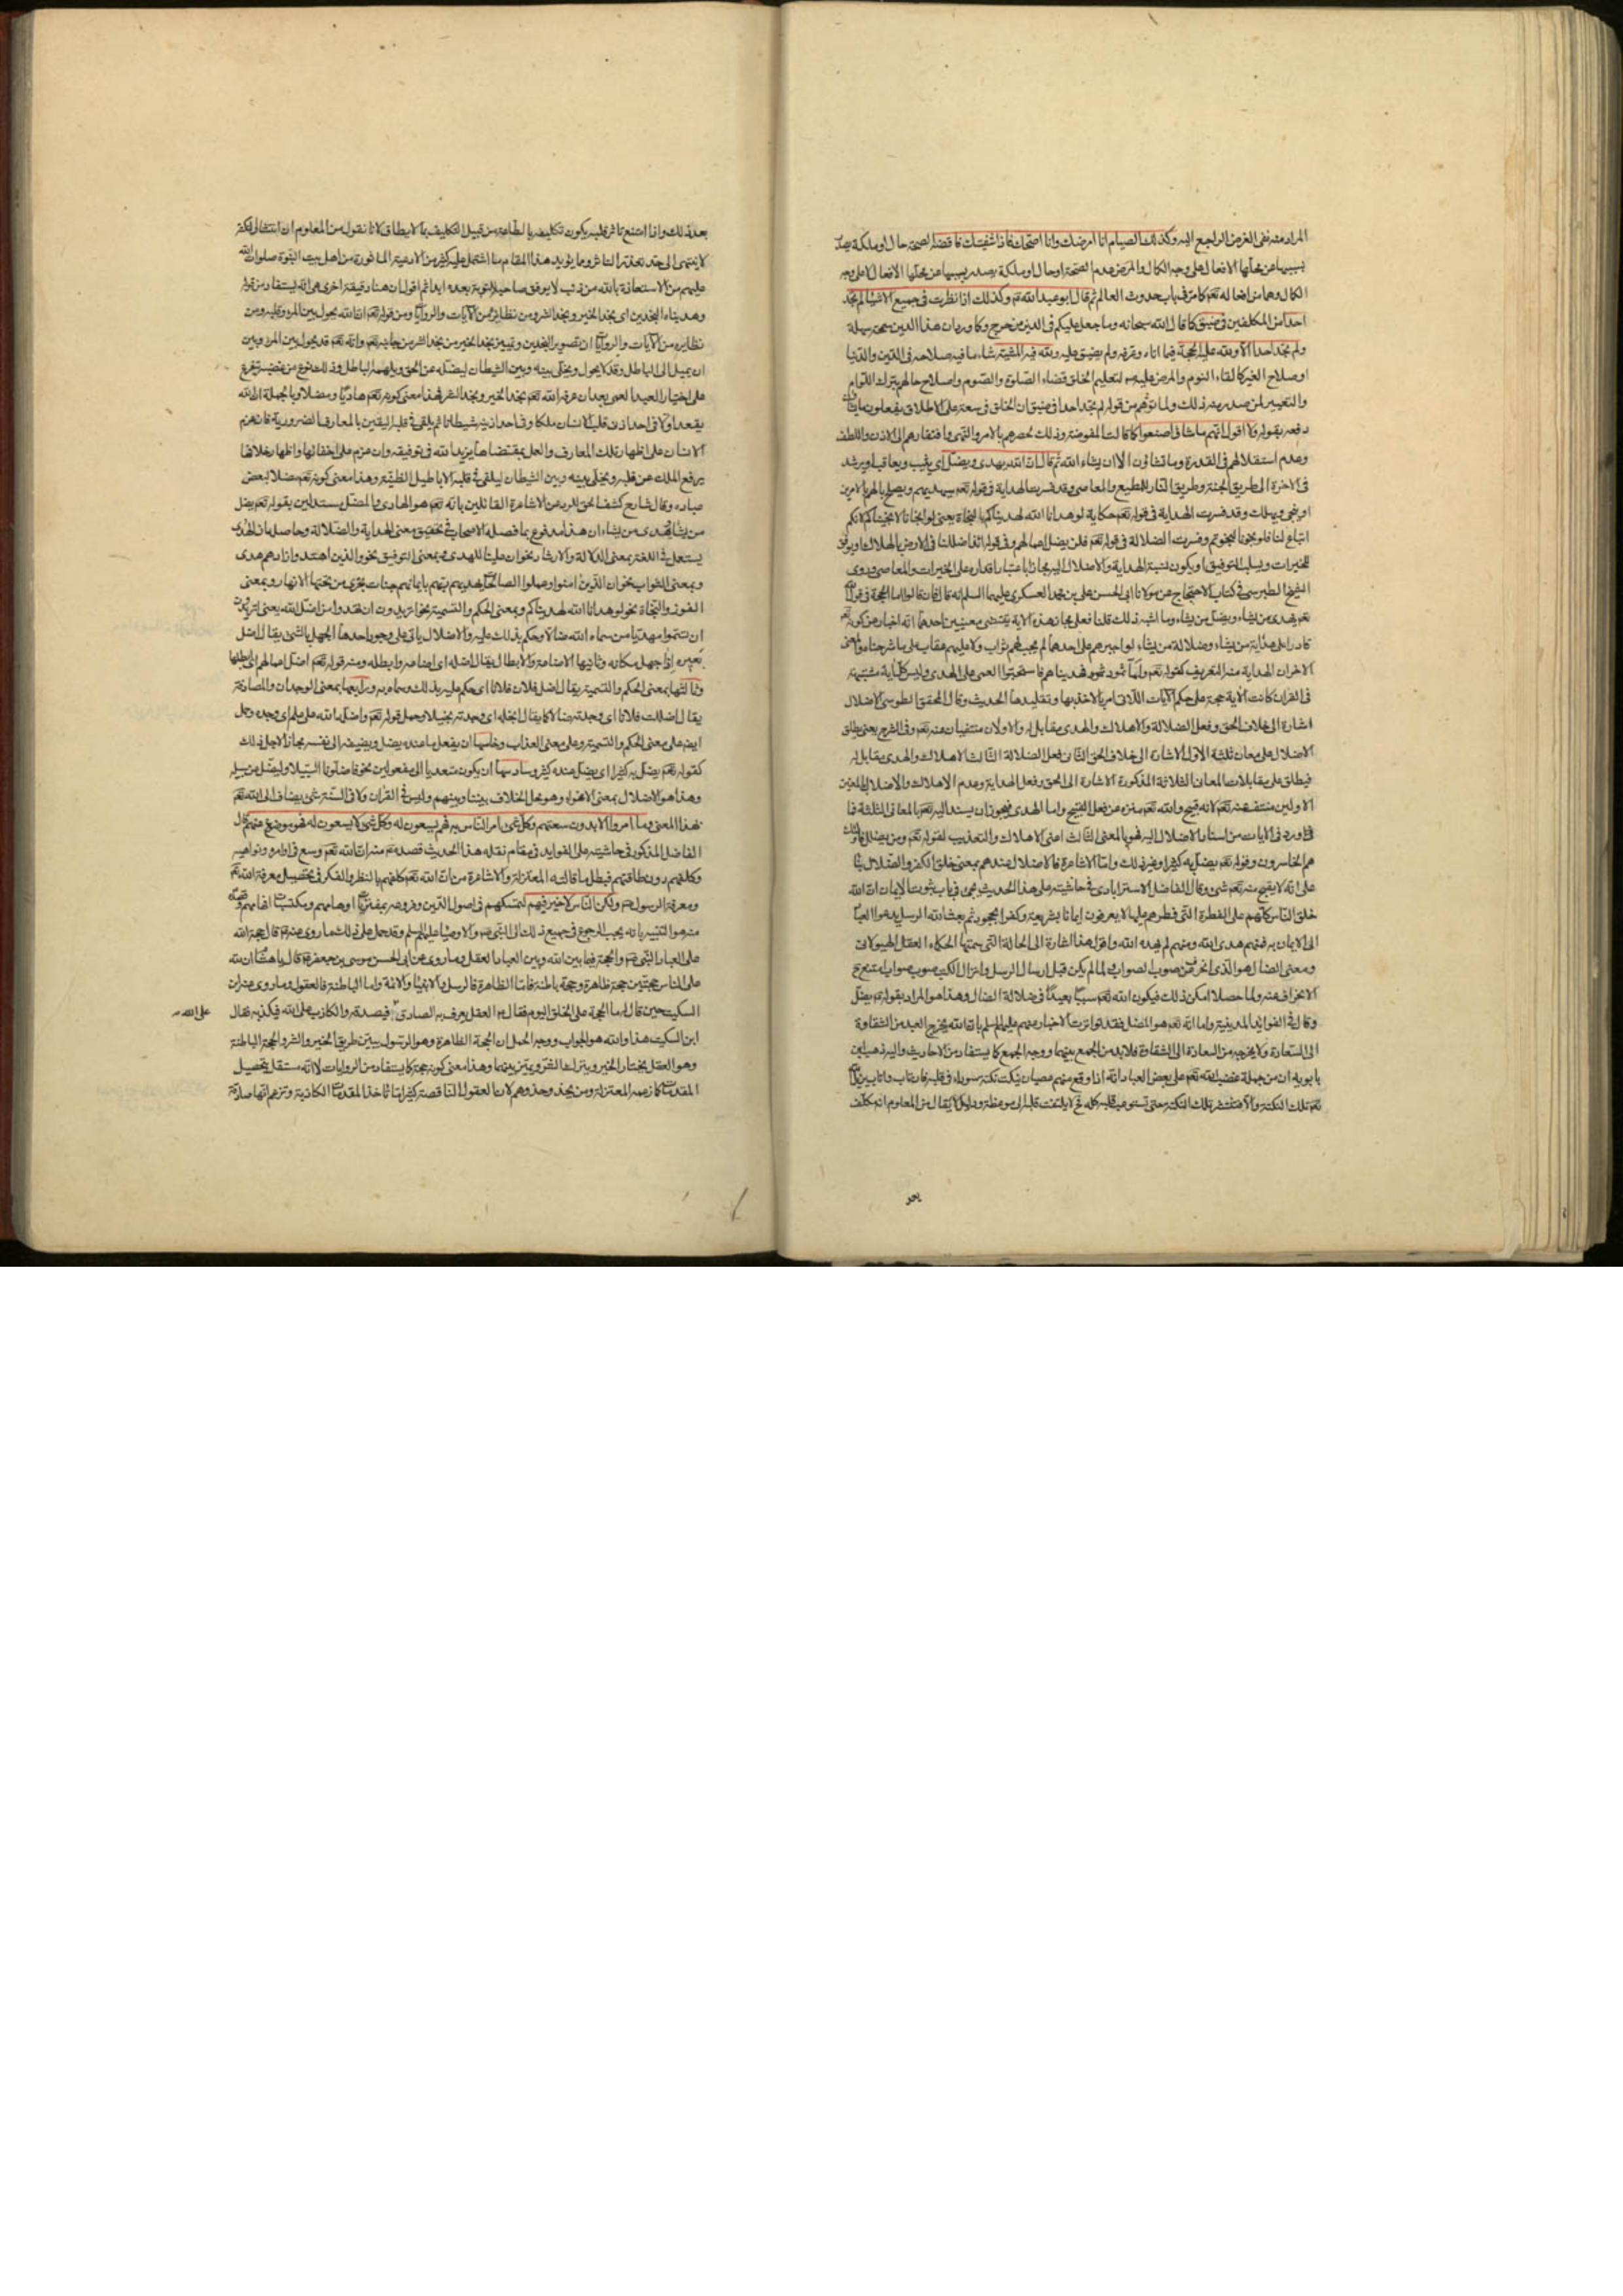 المراد منه نفى الغرض الراجع اليه وكذلك الصيام انا امرضك وانا اصحك فاذا شفيتك فاقضه الصحة حال او ملكة يصدر
بسببها عن محلها الافعال على وجه الكمال والمرض عدم الصحة او حال او ملكة يصدر بسببها عن محلها الافعال لا على وجه
الكمال وهما من افعاله تعم كما مر فى باب حدوث العالم ثم قال ابو عبد الله عم وكذلك اذا نظرت فى جميع الاشياء لم تجد
احدا من المكلفين فى ضيق كما قال الله سبحانه وما جعل عليكم فى الدين من حرج وكما ورد ان هذا الدين سمحة سهلة
ولم تجد احدا الا ولله عليه الحجة فيما اتاه وعرفه ولم يضيق عليه ولله فيه المشية شاء ما فيه صلاحه فى الدين والدنيا
او صلاح الغير كالقاء النوم والمرض عليه لتعليم الخلق قضاء الصلوة والصوم واصلاح حالهم بترك اللوام
والتعيير لمن صدر منه ذلك ولما توهم من قوله لم تجد احدا فى ضيق ان الخلق فى سعة على الاطلاق يفعلون ما يشاؤن
دفعه بقوله ولا اقول انهم ما شاؤا صنعوا كما قالت المفوضة وذلك لحصرهم بالامر والنهى وافتقارهم الى الاذن واللطف
وعدم استقلالهم فى القدرة وما تشاؤن الا ان يشاء الله ثم قال ان الله يهدى ويضل اى يثيب ويعاقب او يرشد
فى الاخرة الى طريق الجنة وطريق النار للمطيع والعاصى وقد فسرت الهداية فى قوله تعم سيهديهم ويصلح بالهم بالامرين
او ينجى ويهلك وقد فسرت الهداية فى قوله تعم حكاية لو هدانا الله لهديناكم بالنجاة يعنى لو انجانا لانجيناكم لانكم
اتباع لنا فلو نجونا لنجوتم وفسرت الضلالة فى قوله تعم فلن يضل اعمالهم وفى قوله ائذا ضللنا فى الارض بالهلاك او يوفق
للخيرات ويسلب التوفيق او يكون نسبة الهداية والاضلال اليه مجازا باعتبار اقداره على الخيرات والمعاصى وروى
الشيخ الطبرسى فى كتاب الاحتجاج عن مولانا ابى الحسن على بن محمد العسكرى عليهما السلم انه قال فان قالوا ما الحجة فى قول الله
تعم يهدى من يشاء ويضل من يشاء وما اشبه ذلك قلنا فعلى مجاز هذه الاية يقتضى معنيين احدهما انه اخبار عن كونه تعم
قادرا على هداية من يشاء وضلالة من يشاء لو اجبرهم على احدهما لم يجب لهم ثواب ولا عليهم عقاب على ما شرحناه والمعنى
الاخر ان الهداية منه التعريف كقوله تعم واما ثمود فهديناهم فاستحبوا العمى على الهدى وليس كل اية مشتبهة
فى القران كانت الاية حجة على حكم الايات اللاتى امر بالاخذ بها وتقليدها الحديث وقال المحقق الطوسى الاضلال
اشارة الى خلاف الحق وفعل الضلالة والاهلاك والهدى مقابل له والاولان منتفيان عنه تعم وفى الشرح يعنى يطلق
الاضلال على معان ثلثة الاول الاشارة الى خلاف الحق الثانى فعل الضلالة الثالث الاهلاك والهدى مقابل له
فيطلق على مقابلات المعانى الثلاثة المذكورة الاشارة الى الحق وفعل الهداية وعدم الاهلاك والاضلال بالمعنيين
الاولين منتف عنه تعم لانه قبيح والله تعم منزه عن فعل القبيح واما الهدى فيجوز ان يسند اليه تعم بالمعانى الثلثة فما
ورد فى الايات من اسناد الاضلال اليه فهو بالمعنى الثالث اعنى الاهلاك والتعذيب لقوله تعم ومن يضلل فاولئك
هم الخاسرون وقوله تعم يضل به كثيرا وغير ذلك واما الاشاعرة فالاضلال عندهم بمعنى خلق الكفر والضلال بناء
على انه لا يقبح منه تعم شئ وقال الفاضل الاسترابادى فى حاشيته على هذا الحديث يجئ فى باب ثبوت الايمان ان الله
خلق الناس كلهم على الفطرة التى فطرهم عليها لا يعرفون ايمانا بشريعة وكفرا بجحود ثم بعث الله الرسل يدعوا العباد
الى الايمان به فمنهم من هدى الله ومنهم لم يهده الله واقول هذا اشارة الى الحالة التى سمتها الحكماء العقل الهيولانى
ومعنى الضال هو الذى انحرف عن صوب الصواب ولما لم يكن قبل ارسال الرسل وانزال الكتب صوب صواب امتنع ح
الانحراف عنه ولما حصلا امكن ذلك فيكون الله تعم سببا بعيدا فى ضلالة الضال وهذا هو المراد بقوله عم يضل
وقال فى الفوائد المدنية واما انه تعم هو المضل فقد تواترت الاخبار عنهم عليهم السلم بان الله يخرج العبد من الشقاوة
الى السعادة ولا يخرجه من السعادة الى الشقاوة فلا بد من الجمع بينهما ووجه الجمع كما يستفاد من الاحاديث واليه ذهب ابن
بابويه ان من جملة غضب الله تعم على بعض العباد انه اذا وقع منهم عصيان ينكت نكتة سوداء فى قلبه فان تاب واناب يزيل الله
تعم تلك النكتة والا فتنتشر تلك النكتة حتى تستوعب قلبه كله ثم لا يلتفت قلبه الى موعظة ودليل لا يقال من المعلوم انه مكلف
بعد
بعد ذلك واذا امتنع تاثر قلبه يكون تكليفه بالطاعة من قبيل التكليف بما لا يطاق لانا نقول من المعلوم ان انتشار النكتة
لا ينتهى الى حد تعذر التاثر ومما يؤيد هذا المقام ما اشتمل عليه كثير من الادعية الماثورة من اهل بيت النبوة صلوات الله
عليهم من الاستعاذة بالله من ذنب لا يوفق صاحبه للتوبة بعده ابدا ثم اقول ان هنا دقيقة اخرى هى انه يستفاد من قوله
وهديناه النجدين اى نجد الخير ونجد الشر ومن نظائره من الايات والروايات ومن قوله تعم ان الله يحول بين المرء وقلبه ومن
نظايره من الايات والروايات ان تصوير النجدين وتمييز نجد الخير من نجد الشر من جانبه تعم وانه تعم قد يحول بين المرء وبين
ان يميل الى الباطل وقد لا يحول ويخلى بينه وبين الشيطان ليضله عن الحق ويلهمه الباطل وذلك نوع من غضبه يتفرع
على اختيار العبد العمى بعد ان عرفه الله تعم نجد الخير ونجد الشر فهذا معنى كونه تعم هاديا ومضلا وبالجملة ان الله
يقعد اولا فى احد اذنى قلب الانسان ملكا وفى احد اذنيه شيطانا ثم يلقى فى قلبه اليقين بالمعارف الضرورية فان عزم
الانسان على اظهار تلك المعارف والعمل بمقتضاها يزيد الله فى توفيقه وان عزم على اخفائها واظهار خلافها
يرفع الملك عن قلبه ويخلى بينه وبين الشيطان ليلقى فى قلبه الاباطيل الظنية وهذا معنى كونه تعم مضلا لبعض
عباده وقال شارح كشف الحق للرد من الاشاعرة القائلين بانه تعم هو الهادى والمضل مستدلين بقوله تعم يضل
من يشاء ويهدى من يشاء ان هذا مدفوع بما فصله الاصحاب فى تحقيق معنى الهداية والضلالة وحاصله ان الهدى
يستعمل فى اللغة بمعنى الدلالة والارشاد نحو ان علينا للهدى وبمعنى التوفيق نحو والذين اهتدوا زادهم هدى
وبمعنى الثواب نحو ان الذين امنوا وعملوا الصالحات يهديهم ربهم بايمانهم جنات تجرى من تحتها الانهار وبمعنى
الفوز والنجاة نحو لو هدانا الله لهديناكم وبمعنى الحكم والتسمية نحو اتريدون ان تهدوا من اضل الله يعنى اتريدون
ان تسموا مهتديا من سماه الله ضالا وحكم بذلك عليه والاضلال ياتى على وجوه احدها الجهل بالشئ يقال اضل
بعيره اذا جهل مكانه وثانيها الاضاعة والابطال يقال اضله اى اضاعه وابطله ومنه قوله تعم اضل اعمالهم اى ابطلها
وثالثها بمعنى الحكم والتسمية يقال اضل فلان فلانا اى حكم عليه بذلك وسماه به ورابعها بمعنى الوجدان والمصادفة
يقال اضللت فلانا اى وجدته ضالا كما يقال ابخلته اى وجدته بخيلا وحمل قوله تعم واضله الله على علم اى وجده وحمل
ايضا على معنى الحكم والتسمية وعلى معنى العذاب وخامسها ان يفعل ما عنده يضل ويضيفه الى نفسه مجازا لاجل ذلك
كقوله تعم يضل به كثيرا اى يضل عنده كثير وسادسها ان يكون متعديا الى مفعولين نحو فاضلونا السبيلا وليضل عن سبيله
وهذا هو الاضلال بمعنى الاغواء وهو محل الخلاف بيننا وبينهم وليس فى القران ولا فى السنة شئ يضاف الى الله تعم
بهذا المعنى وما امروا الا بدون سعتهم وكل شئ امر الناس به فهم يسعون له وكل شئ لا يسعون له فهو موضوع عنهم قال
الفاضل المذكور فى حاشيته على الفوايد فى مقام نقله هذا الحديث قصده عم منه ان الله تعم وسع فى اوامره ونواهيه
وكلفهم دون طاقتهم فبطل ما قالته المعتزلة والاشاعرة من ان الله تعم كلفهم بالنظر والفكر فى تحصيل معرفة الله تعم
ومعرفة الرسول ص ولكن الناس لا خير فيهم لتمسكهم فى اصول الدين وفروعه بمفتريات اوهامهم ومكتسبات افهامهم وقصده
منه هو التنبيه بانه يجب الرجوع فى جميع ذلك الى النبى ص والاوصياء عليهم السلم وقد حمل على ذلك ما روى عنه عم قال حجة الله
على العباد النبى ص والحجة فيما بين الله وبين العباد العقل وما روى عن ابى الحسن موسى بن جعفر عم قال يا هشام ان لله
على الناس حجتين حجة ظاهرة وحجة باطنة فاما الظاهرة فالرسل والانبياء والائمة واما الباطنة فالعقول وما روى عنه ان
السكيت حين قال له ما الحجة على الخلق اليوم فقال عم العقل يعرف به الصادق فيصدقه والكاذب على الله فيكذبه فقال
على الله
ابن السكيت هذا والله هو الجواب ووجه الحمل ان الحجة الظاهرة وهو الرسول يبين طريق الخير والشر والحجة الباطنة
وهو العقل يختار الخير ويترك الشر ويميز بينهما وهذا معنى كونه حجة كما يستفاد من الروايات لا انه مستقل بتحصيل
المقدمات كما زعمه المعتزلة ومن يحذو حذوهم لان العقول الناقصة كثيرا ما تاخذ المقدمات الكاذبة وتزعم انها صادقة